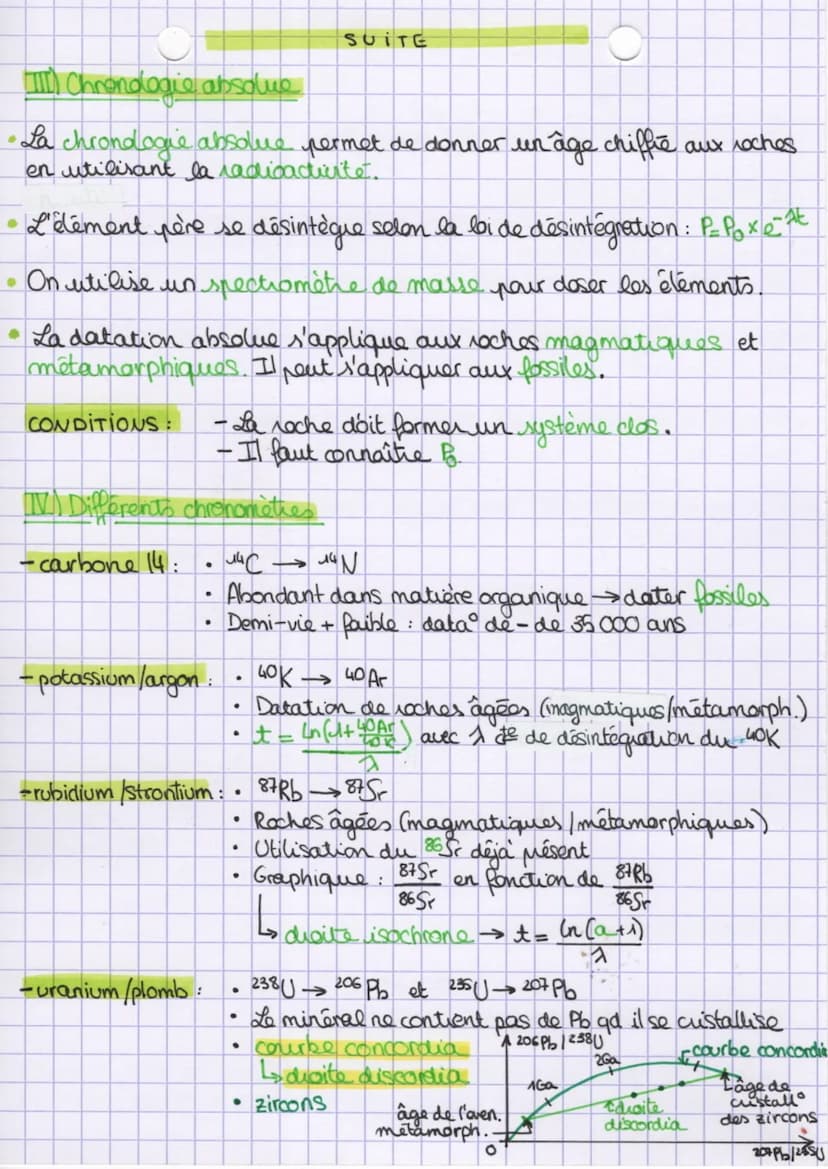 SUITE
III) Chronologie absolue
• La chronologie absolue permet de donner un âge chiffré aux roches
en utilisant la radioactivité.
• L'élément père se désintègre selon la loi de désintégration : P=P₀×e^-λt
• On utilise un spectromètre de masse pour doser les éléments.
• La datation absolue s'applique aux roches magmatiques et
métamorphiques. Il peut s'appliquer aux fossiles.
CONDITIONS : - La roche doit former un système clos.
- Il faut connaître P₀.
IV) Différents chronomètres
- carbone 14 : • ¹⁴C → ¹⁴N
• Abondant dans matière organique → dater fossiles
• Demi-vie + faible : data° de - de 35 000 ans
- potassium/argon : • 40K → 40Ar
• Datation de roches âgées (magmatiques/métamorph.)
• t = ln(1+ 40Ar/40K)/λ avec λ cte de désintégration du 40K
- rubidium/strontium : • ⁸⁷Rb → ⁸⁷Sr
• Roches âgées (magmatiques/métamorphiques)
• Utilisation du ⁸⁶Sr déjà présent
• Graphique : 87Sr/86Sr en fonction de 87Rb/86Sr
↳ droite isochrone → t = ln(a+1)/λ
- uranium/plomb : • ²³⁸U → ²⁰⁶Pb et ²³⁵U → ²⁰⁷Pb
• Le minéral ne contient pas de Pb qd il se cristallise
• courbe concordia
↳ droite discordia
• zircons
206Pb/238U
courbe concordia
2Ga
1Ga
âge de
cristall°
des zircons
droite
discordia
âge de l'aven.
métamorph.
0
207Pb/235U